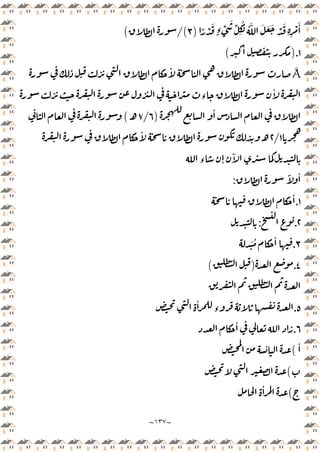 أَمْرِهِ قَدْ جَعَلَ اللَّهُ لِكُلِّ شَيْءٍ قَدْرًا (٣)/سورة الطلاق)
١.(مكرر بتفصيل أكبر)
& صارت سورة الطلاق هي الناسخة لأحكام الطلاق التي نزلت قبل ذلك في سورة
البقرة لأن سورة الطلاق جاءت متراخية في النزول عن سورة البقرة حيث نزلت سورة
الطلاق في العام السادس أو السابع للهجرة (٧/٦ هـ) وسورة البقرة في العام الثاني
هجريا/٢هـ وبذلك تكون سورة الطلاق ناسخة لأحكام الطلاق في سورة البقرة
بالتبديل كما سنرى الآن إن شاء الله
أولاً سورة الطلاق:
١.أحكام الطلاق فيها ناسخة
٢.نوع النسخ: بالتبديل
٣.فيها أحكام مُبَدلة
٤.موضع العدة(قبل التطليق)
العدة ثم التطليق ثم التفريق
٥.العدة فيها ثلاثة قروء للمرأة التي تحيض
٦.زاد الله تعالى في أحكام العدد
أ )عدة اليائسة من المحيض
ب)عدة الصغير التي لا تحيض
ج)عدة المرأة الحامل
~١٣٧~